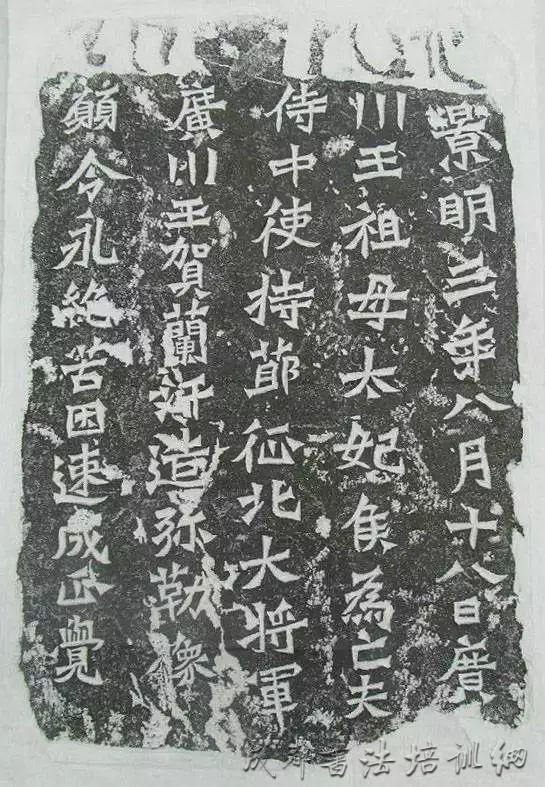 景明三年八月十八日廣
川王祖母太妃侯為亡夫
侍中使持節征北大將軍
廣川王賀蘭汗造弥勒像
願令永絕苦困速成正覺
成都書法培训網